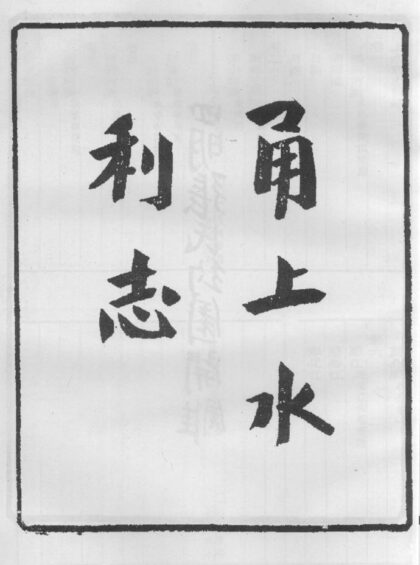 甬上水
利志